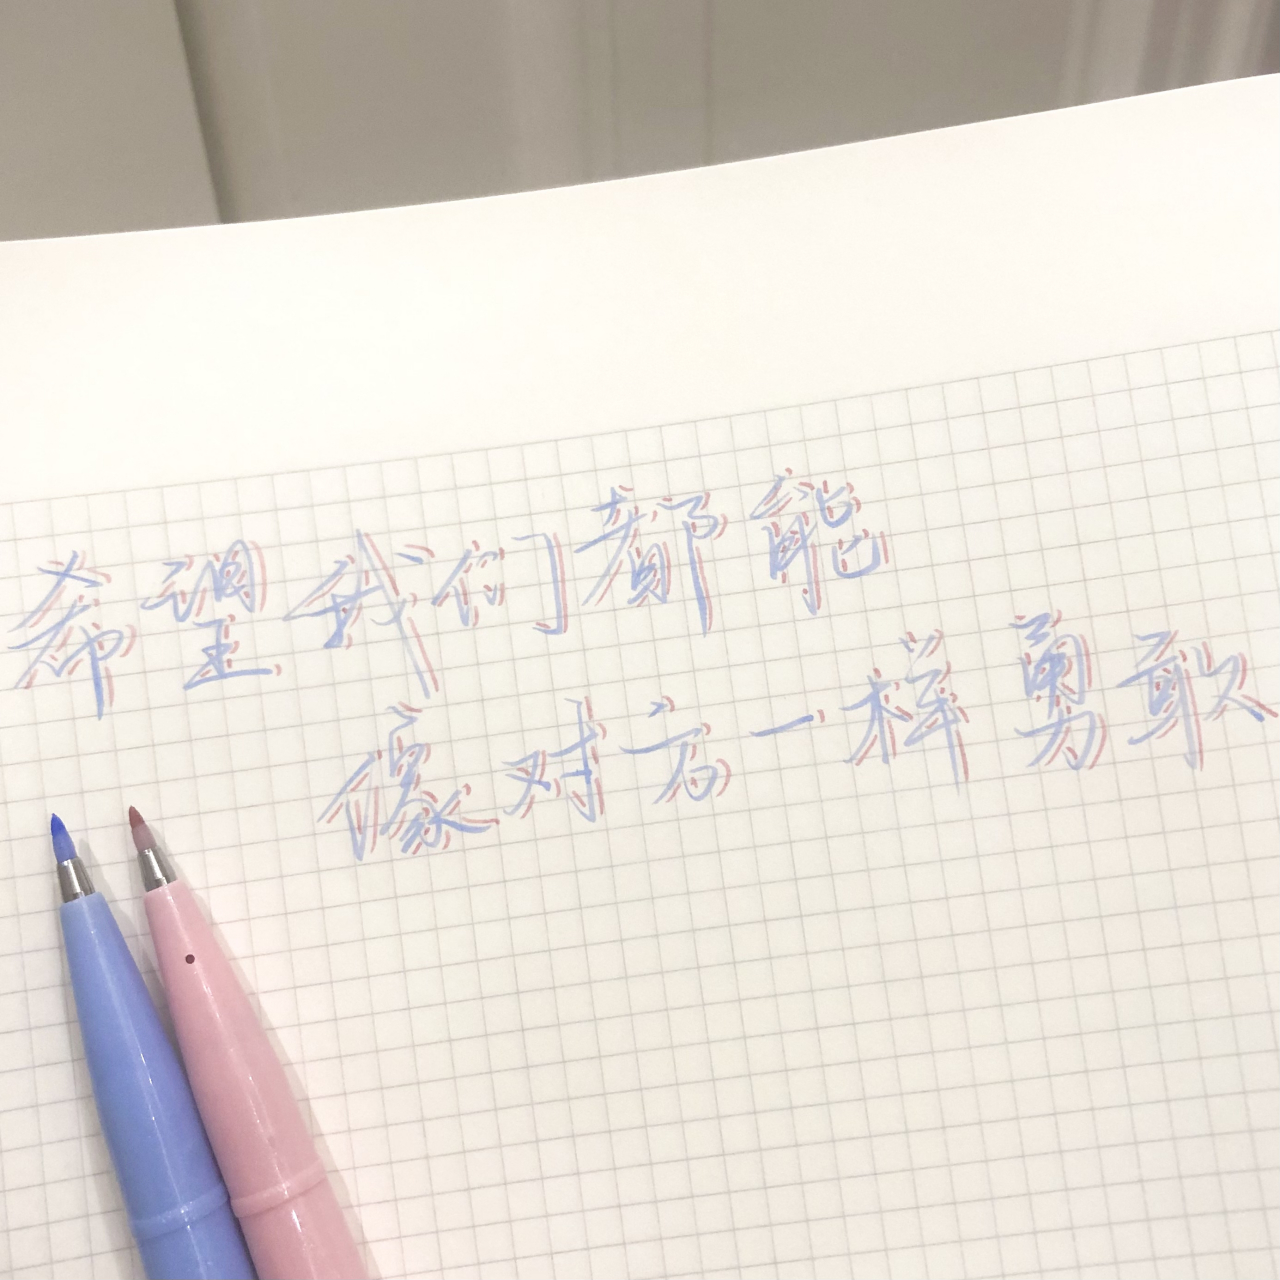 希望我们都能
像对方一样勇敢